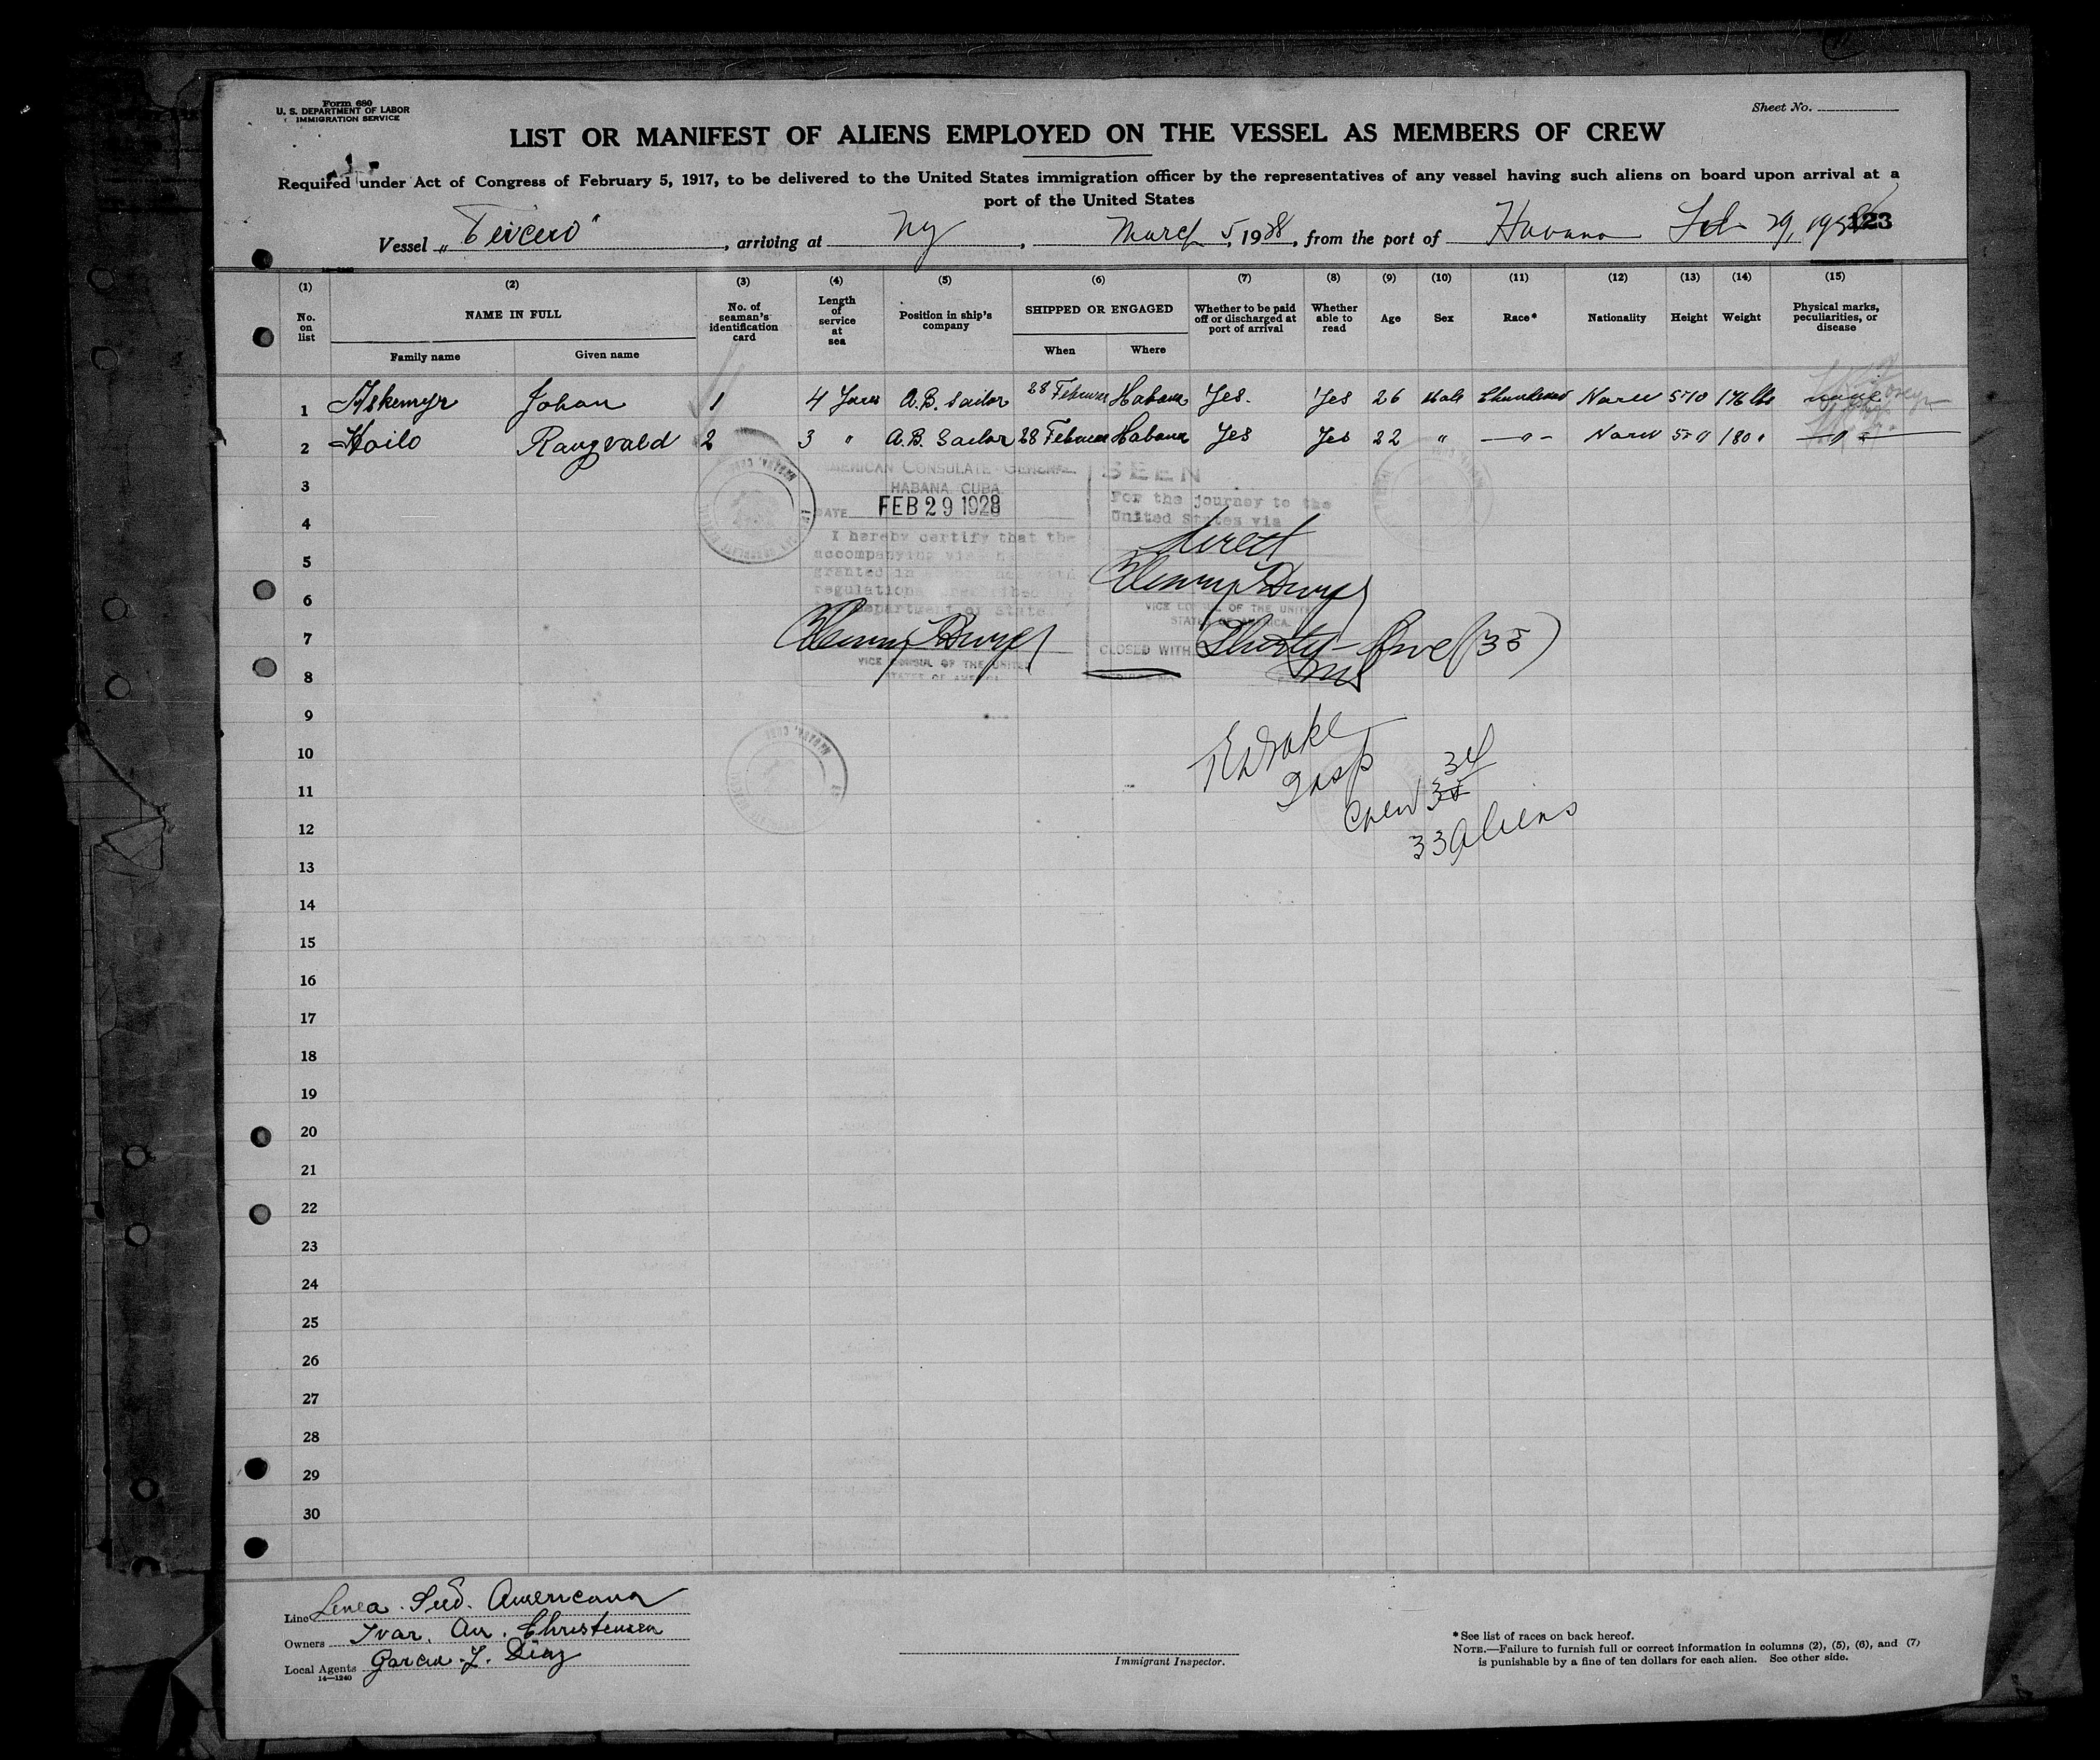 Form 680
U. S. DEPARTMENT OF LABOR
IMMIGRATION SERVICE
Sheet No.
LIST OR MANIFEST OF ALIENS EMPLOYED ON THE VESSEL AS MEMBERS OF CREW
Required under Act of Congress of February 5, 1917, to be delivered to the United States immigration officer by the representatives of any vessel having such aliens on board upon arrival at a
port of the United States
Vessel, arriving at Ny, March 5, 1928, from the port of Havana Feb 29, 1928 123
(1) (2) (3) (4) (5) (6) (7) (8) (9) (10) (11) (12) (13) (14) (15)
No. on list
NAME IN FULL
Family name
Given name
No. of seaman's identification card
Length of service at sea
Position in ship's company
SHIPPED OR ENGAGED
When
Where
Whether to be paid off or discharged at port of arrival
Whether able to read
Age
Sex
Race*
Nationality
Height
Weight
Physical marks, peculiarities, or disease
1 Johan 1 4 A.B. Sailor 28 Habana Yes. Yes 26 Male 5-10 176 lbs none
2 Hoilo Rangvald 2 3 " A.B. Sailor 28 Habana Yes Yes 22 " —"— 180 " —"—
3
AMERICAN CONSULATE GENERAL
HABANA, CUBA
DATE FEB 29 1928
I hereby certify that the
accompanying visa has been
granted in accordance with
regulations prescribed by
Department of State.
VICE CONSUL OF THE UNITED
STATES OF AMERICA
SEEN
For the journey to the
United States via
direct
VICE CONSUL OF THE UNITED
STATES OF AMERICA.
CLOSED WITH Thirty-five (35)
4
5
6
7
8
9
10
11
12
13
14
15
16
17
18
19
20
21
22
23
24
25
26
27
28
29
30
Insp
Crew 34
33 Aliens
Line Linea Sud. Americana
Owners Ivar. An. Christensen
Local Agents Garcia. Y. Diaz
14—1240
Immigrant Inspector.
* See list of races on back hereof.
NOTE.—Failure to furnish full or correct information in columns (2), (5), (6), and (7)
is punishable by a fine of ten dollars for each alien. See other side.